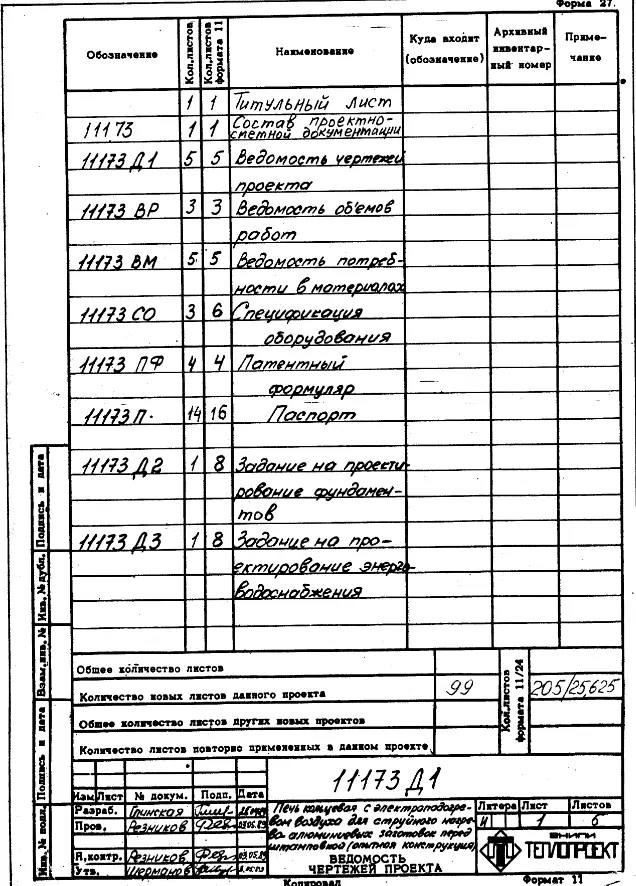 Форма 27.
Обозначение Кол.листов Кол.листов формата 11 Наименование Куда входит (обозначение) Архивный инвентарный номер Примечание
1 1 Титульный лист
11173 1 1 Состав проектно-
сметной документации
11173 Д1 5 5 Ведомость чертежей
проекта
11173 ВР 3 3 Ведомость объемов
работ
11173 ВМ 5 5 Ведомость потреб-
ности в материалах
11173 СО 3 6 Спецификация
оборудования
11173 ПФ 4 4 Патентный
формуляр
11173 П. 14 16 Паспорт
11173 Д2 1 8 Задание на проекти-
рование фундамен-
тов
11173 Д3 1 8 Задание на про-
ектирование энерго-
водоснабжения
Общее количество листов
Количество новых листов данного проекта 99 Кол.листов формата 11/24 205/25,625
Общее количество листов других новых проектов
Количество листов повторно примененных в данном проекте
Инв.№ подл. Подпись и дата Взам.инв.№ Инв.№ дубл. Подпись и дата
11173 Д1
Изм Лист № докум. Подп. Дата
Разраб. Глинская
Пров. Резников
Н.контр. Резников 03.05.89
Утв.
Печь кольцевая с электроподогре-
вом воздуха для струйного нагре-
ва алюминиевых заготовок перед
штамповкой (опытная конструкция)
ВЕДОМОСТЬ
ЧЕРТЕЖЕЙ ПРОЕКТА
Литера Лист Листов
И 1 5
ВНИПИ
ТЕПЛОПРОЕКТ
Копировал Формат 11